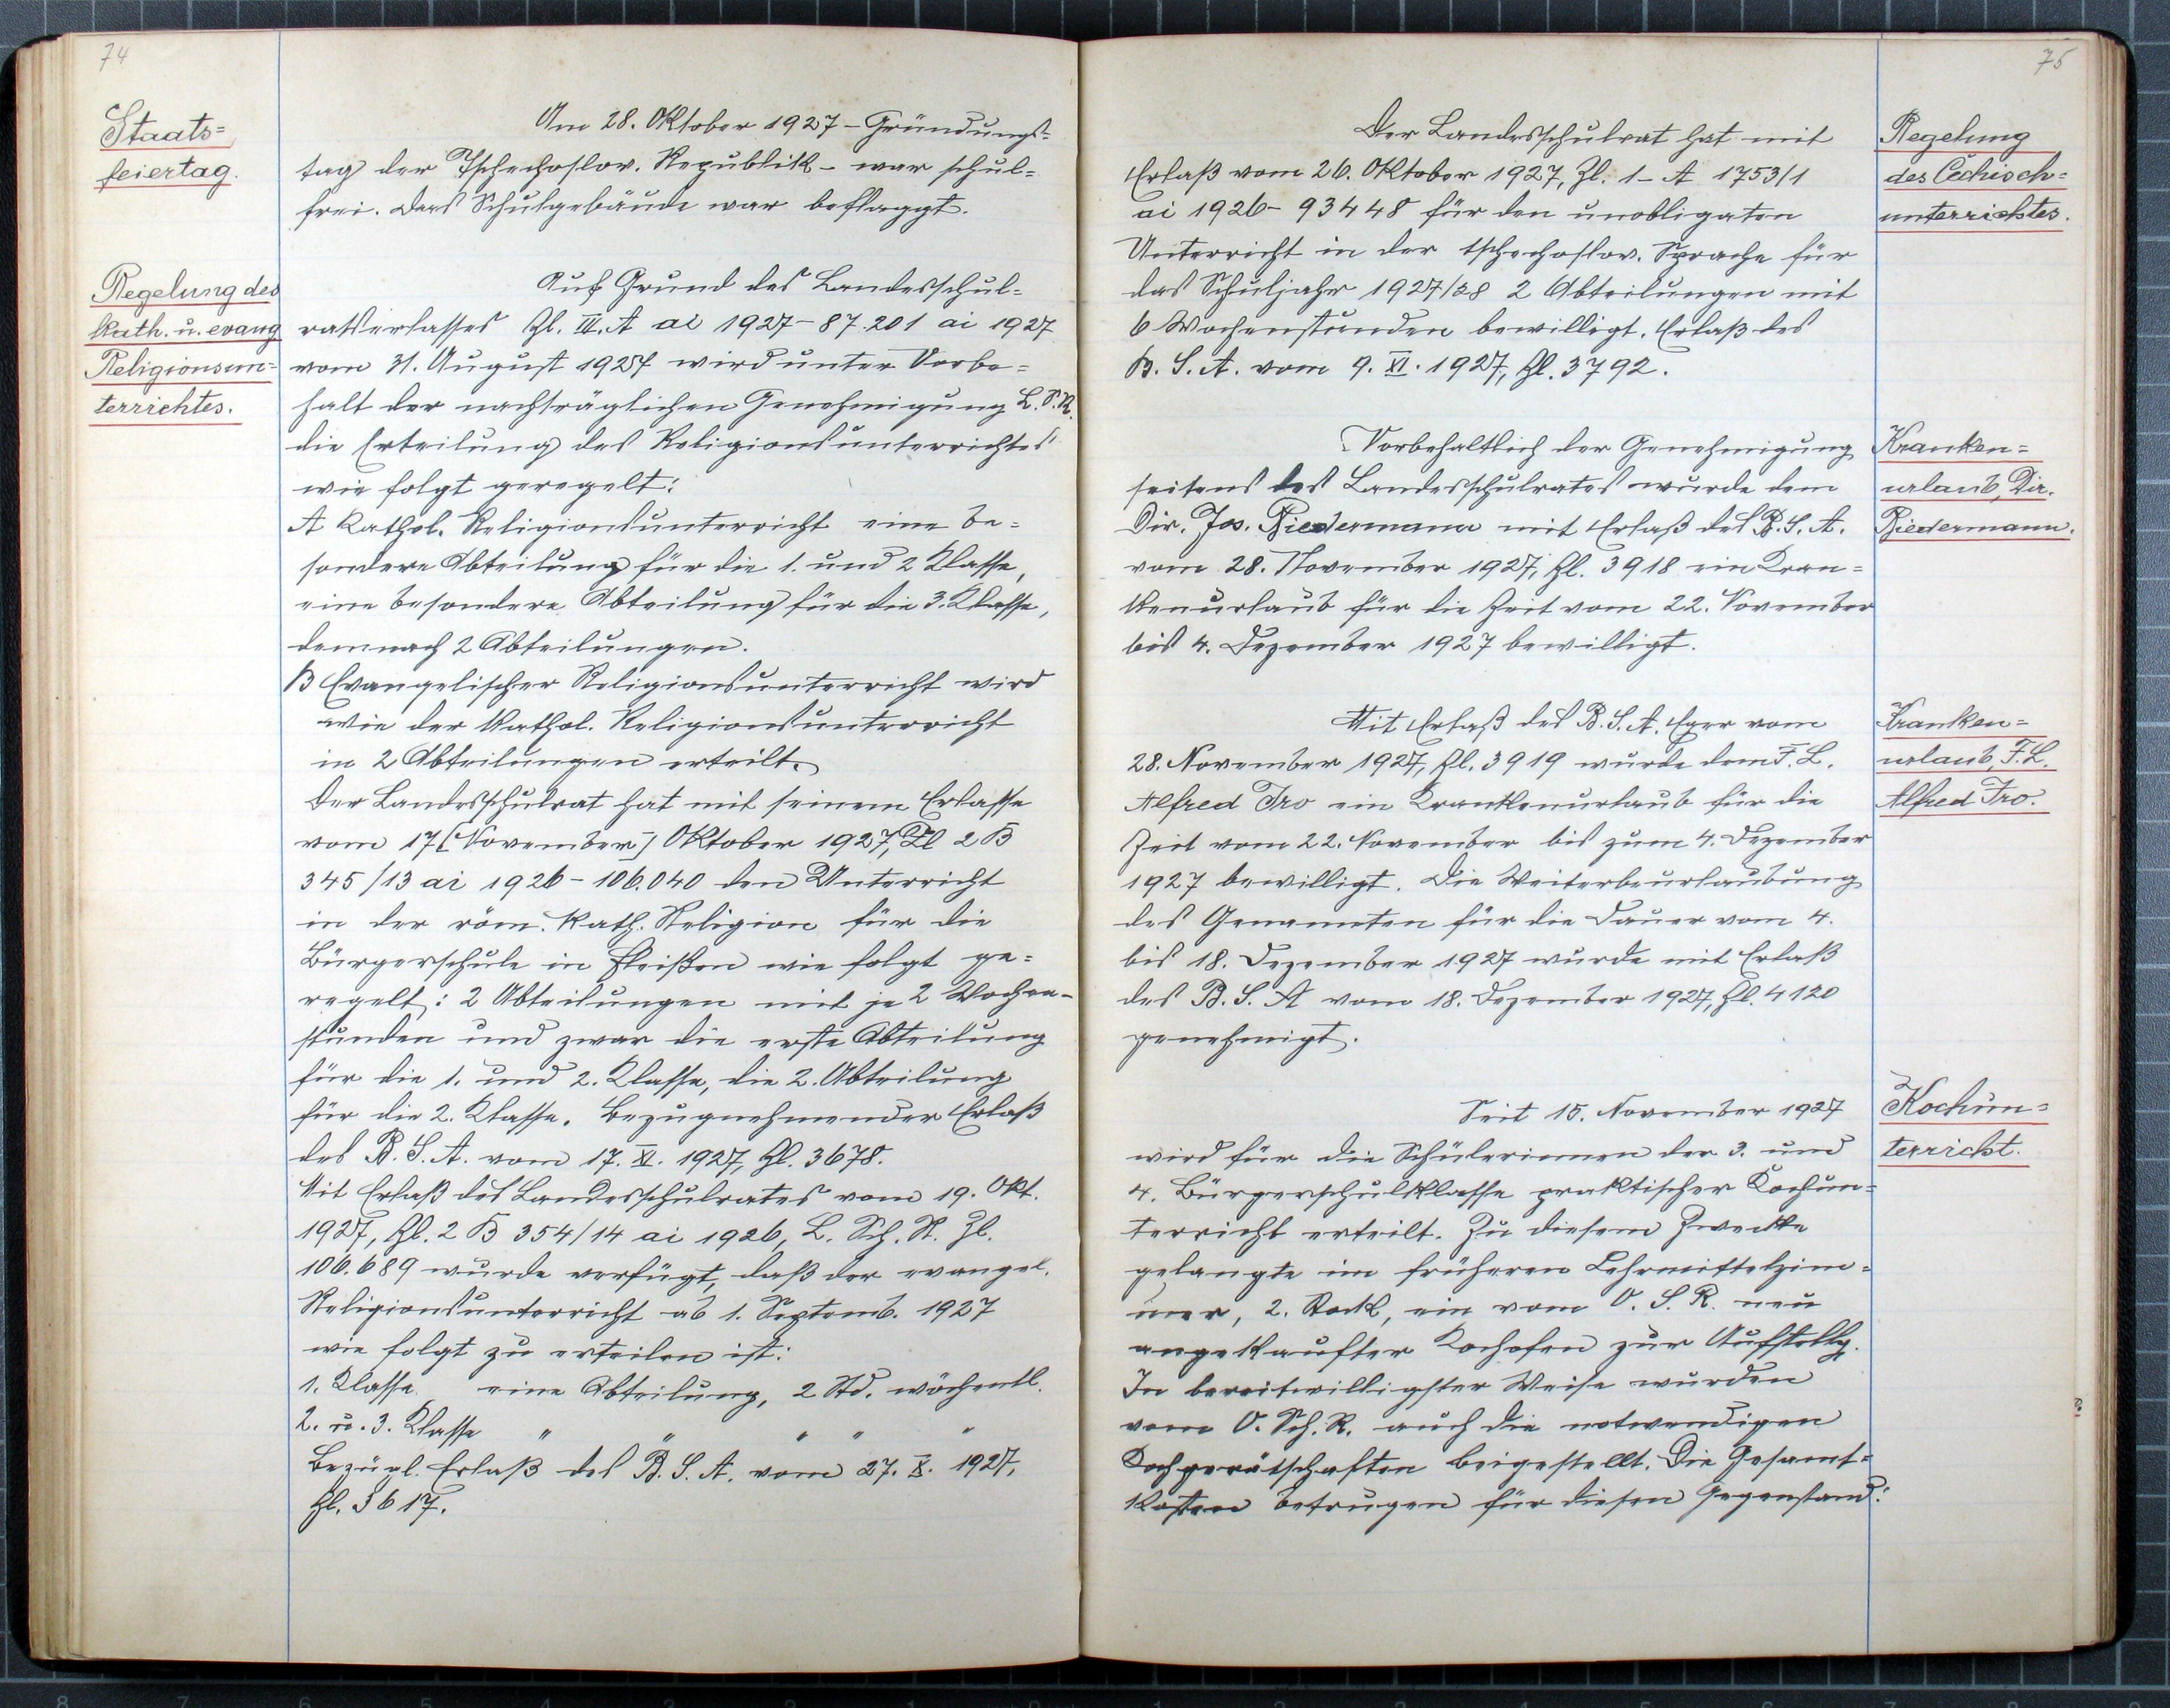 74
Staats=
feiertag.
Am 28. Oktober 1927 - Gründungs-
tag der Tschechoslov. Republik - war schul=
frei. Das Schulgebäude war beflaggt.
Regelung des
kath. u. evang
Religionsun=
terrichtes.
Auf Grund des Landesschul=
ratserlasses Zl. III. A ai 1927 - 87.201 ai 1927
vom 31. August 1927 wird unter Vorbe=
halt der nachträglichen Genehmigung L. S. R.
die Erteilung des Religionsunterrichtes
wie folgt geregelt:
A Kathol. Religionsunterricht eine be=
sondere Abteilung für die 1. und 2 Klasse,
eine besondere Abteilung für die 3. Klasse,
demnach 2 Abteilungen.
B Evangelischer Religionsunterricht wird
wie der kathol. Religionsunterricht
in 2 Abteilungen erteilt.
Der Landesschulrat hat mit seinem Erlasse
vom 17 [November] Oktober 1927, Zl 2 B
345/13 ai 1926 - 106.040 den Unterricht
in der röm. kath. Religion für die
Bürgerschule in Fleißen wie folgt ge=
regelt: 2 Abteilungen mit je 2 Wochen-
stunden und zwar die erste Abteilung
für die 1. und 2. Klasse, die 2. Abteilung
für die 2. Klasse. Bezugnehmender Erlaß
des B. S. A. vom 17. XI. 1927, Zl. 3678.
Mit Erlaß des Landesschulrates vom 19. Okt.
1927, Zl. 2 B 354/14 ai 1926, L. Sch. R. Zl.
106.689 wurde verfügt, daß der evangel.
Religionsunterricht ab 1. Septemb. 1927
wie folgt zu erteilen ist:
1. Klasse eine Abteilung, 2 Std. wöchentl.
2. u. 3. Klasse " " " " "
Bezügl. Erlaß des B. S. A. vom 27. X. 1927,
Zl. 3617.
75
Der Landesschulrat hat mit
Erlaß vom 26. Oktober 1927, Zl. 1 - A 1753/1
ai 1926 - 93448 für den unobligaten
Unterricht in der tschechoslov. Sprache für
das Schuljahr 1927/28 2 Abteilungen mit
6 Wochenstunden bewilligt. Erlaß des
B. S. A. vom 9. XI. 1927, Zl. 3792.
Regelung
des Čechisch=
unterrichtes.
Vorbehaltlich der Genehmigung
seitens des Landesschulrates wurde dem
Dir. Jos. Biedermann mit Erlaß des B. S. A.
vom 28. November 1927, Zl. 3918 ein Kran=
kenurlaub für die Zeit vom 22. November
bis 4. Dezember 1927 bewilligt.
Kranken=
urlaub, Dir.
Biedermann.
Mit Erlaß des B. S. A. Eger vom
28. November 1927, Zl. 3919 wurde dem F. L.
Alfred Iro ein Krankenurlaub für die
Zeit vom 22. November bis zum 4. Dezember
1927 bewilligt. Die Weiterbeurlaubung
des Genannten für die Dauer vom 4.
bis 18. Dezember 1927 wurde mit Erlaß
des B. S. A vom 18. Dezember 1927, Zl. 4120
genehmigt.
Kranken=
urlaub, F. L.
Alfred Iro.
Seit 15. November 1927
wird für die Schülerinnen der 3. und
4. Bürgerschulklasse praktischer Kochun=
terricht erteilt. Zu diesem Zwecke
gelangte im früheren Lehrmittelzim=
mer, 2. Stock, ein vom O. S. R. neu
angekaufter Kochofen zur Aufstellg.
In bereitwilligster Weise wurden
vom O. Sch. R. auch die notwendigen
Kochgerätschaften beigestellt. Die Gesamt=
kosten betrugen für diesen Gegenstand:
Kochun=
terricht.